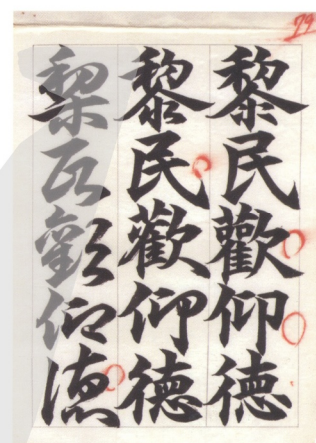 79
黎民歡仰德
黎民歡仰德
黎民歡仰德